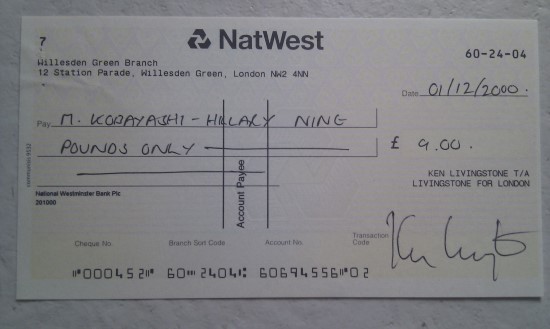 7
NatWest
60-24-04
Willesden Green Branch
12 Station Parade, Willesden Green, London NW2 4NN
Date 01/12/2000.
Pay M. KOBAYASHI - HILLARY NINE
POUNDS ONLY
£ 9.00.
Account Payee
KEN LIVINGSTONE T/A
LIVINGSTONE FOR LONDON
National Westminster Bank Plc
201000
Cheque No. Branch Sort Code Account No. Transaction Code
⑈000452⑈ 60⑉2404⑆ 60694556⑈02